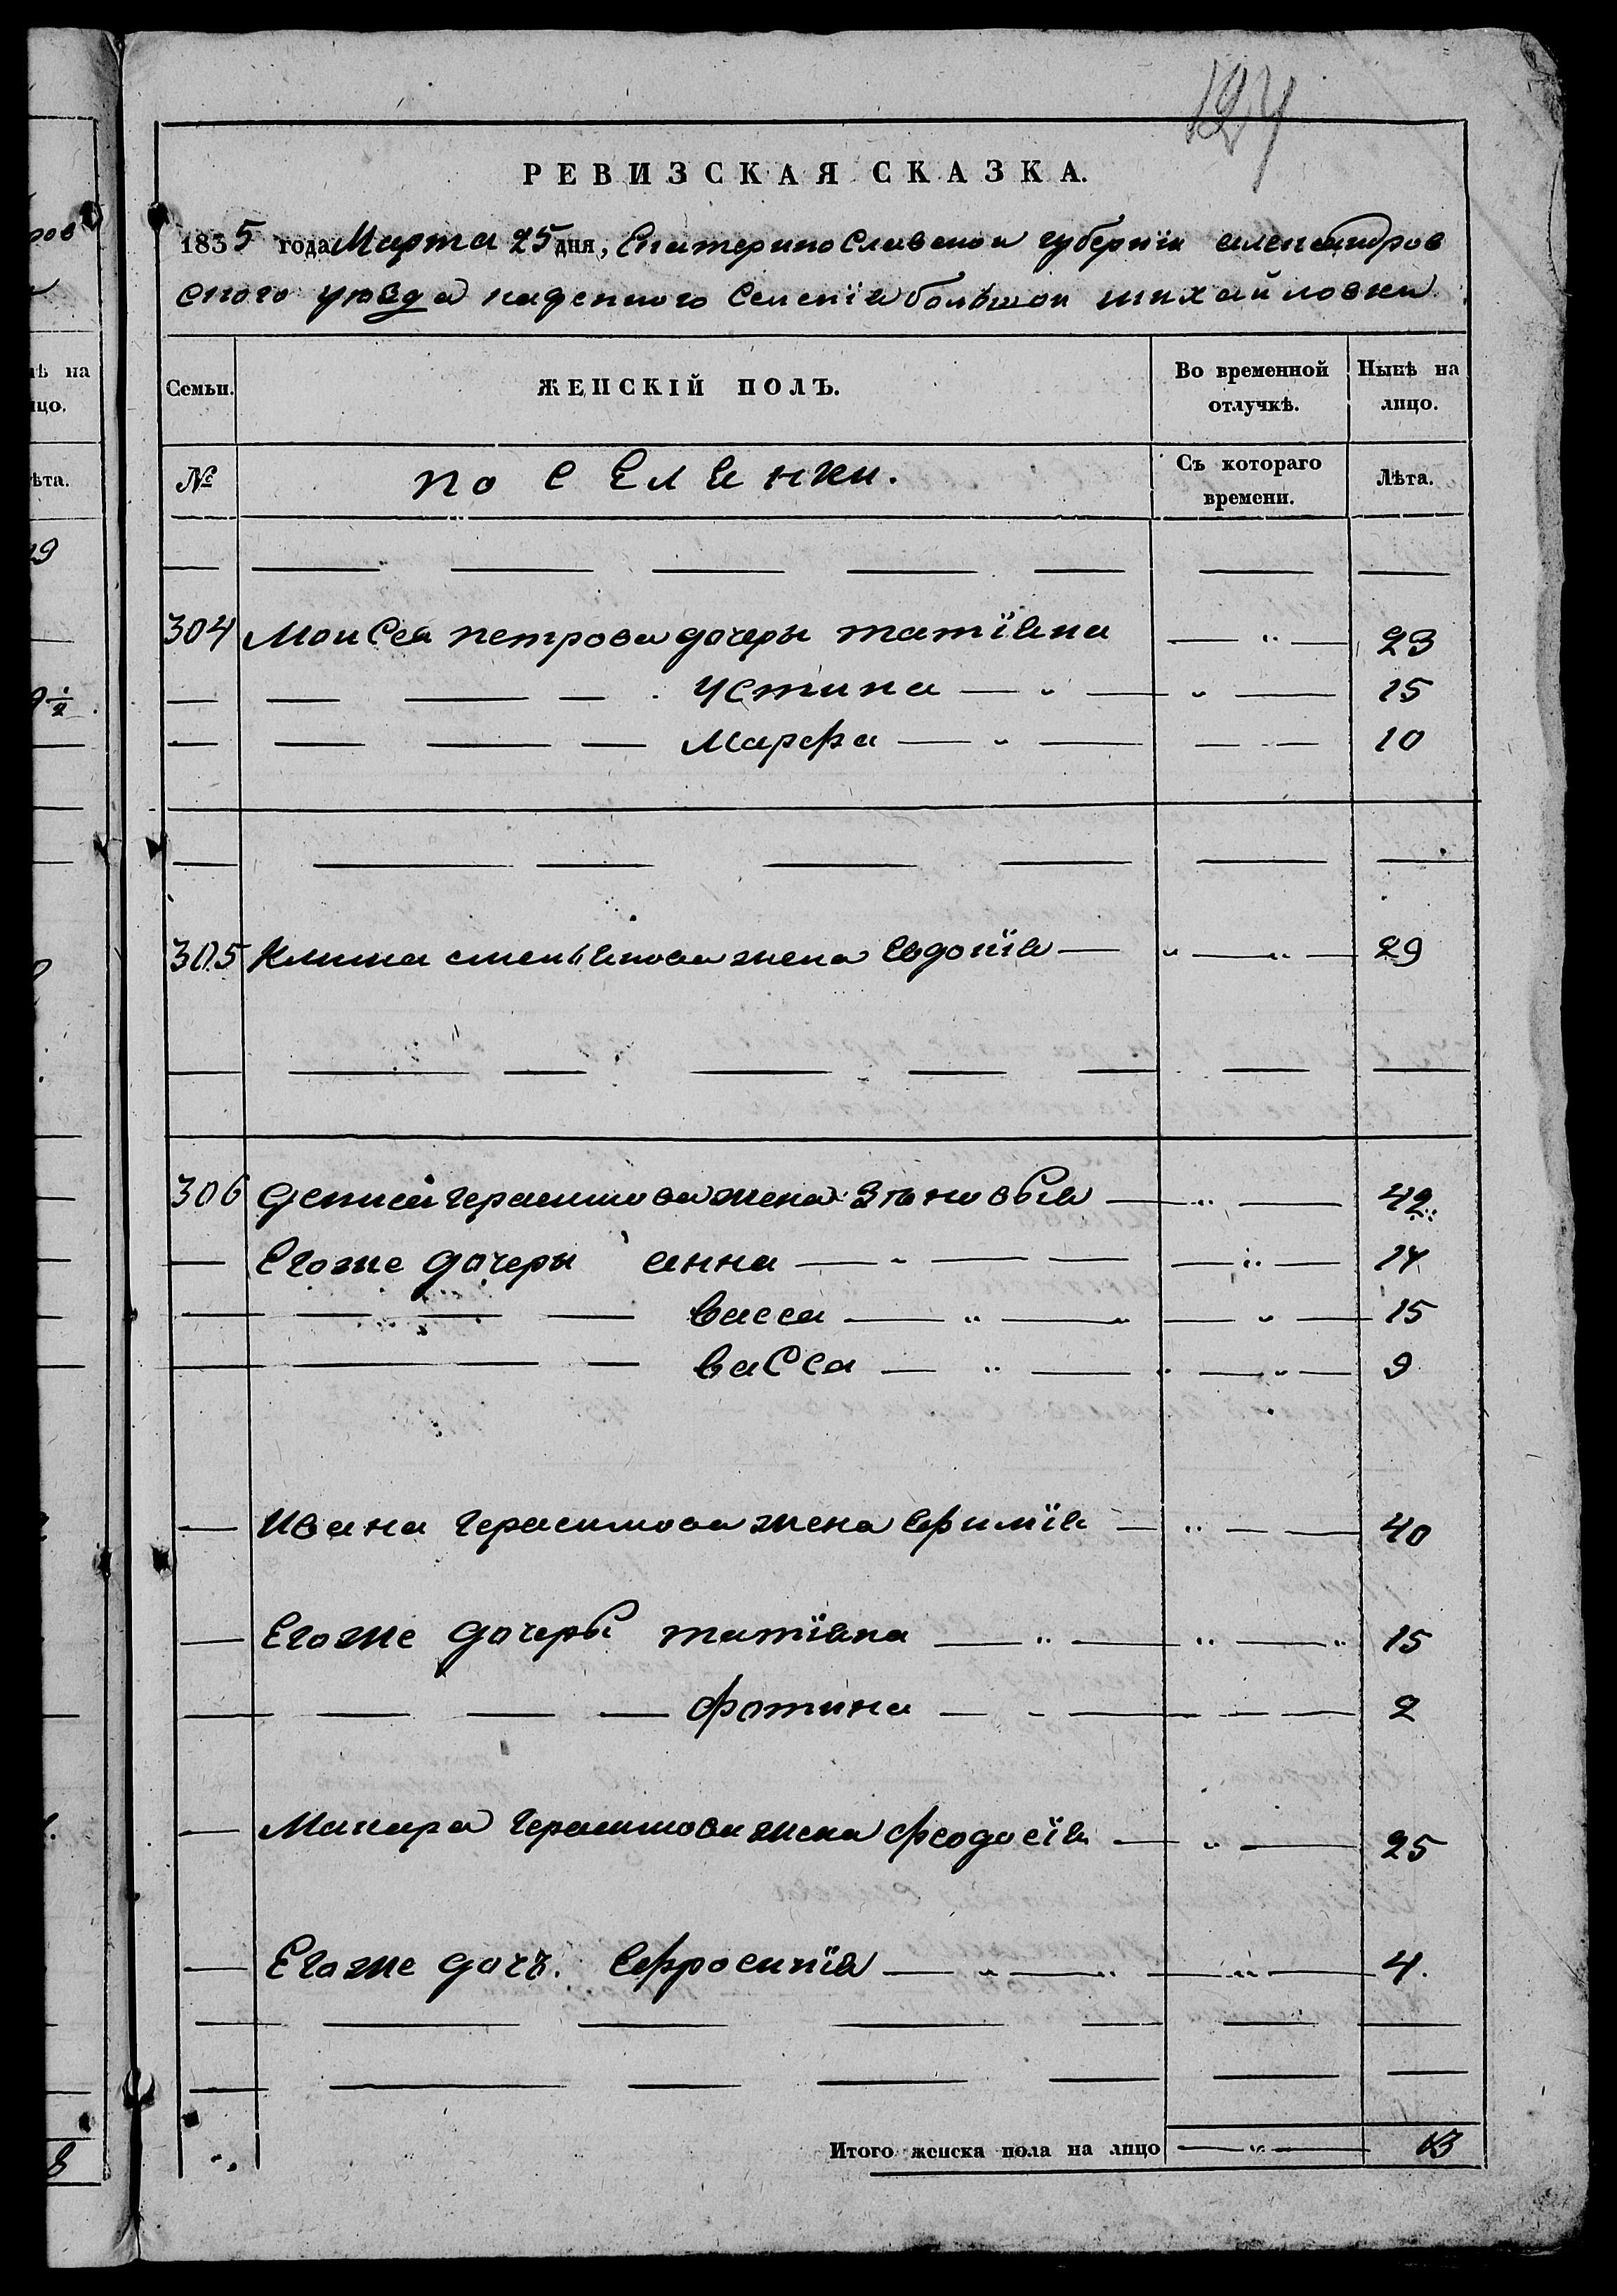 124
РЕВИЗСКАЯ СКАЗКА.
1835 года Марта 25 дня, Екатеринославской губернїи александров
ского уѣзда казенного Селенїя большой михайловки
Семьи. ЖЕНСКІЙ ПОЛЪ. Во временной отлучкѣ. Нынѣ на лицо.
№ поселянки. Съ котораго времени. Лѣта.
304 Моисея петрова дочеры татїяна 23
Устина 15
Марфа 10
305 Клима степанова жена Евдокїя 29
306 Дениса герасимова жена Зѣновья 42
Егоже дочеры анна 17
васса 15
васса 9
Ивана герасимова жена Ефимїя 40
Егоже дочеры татїяна 15
фотина 2
Макара герасимова жена феодосїя 25
Егоже дочъ. Ефросинїя 4.
Итого женска пола на лицо 13